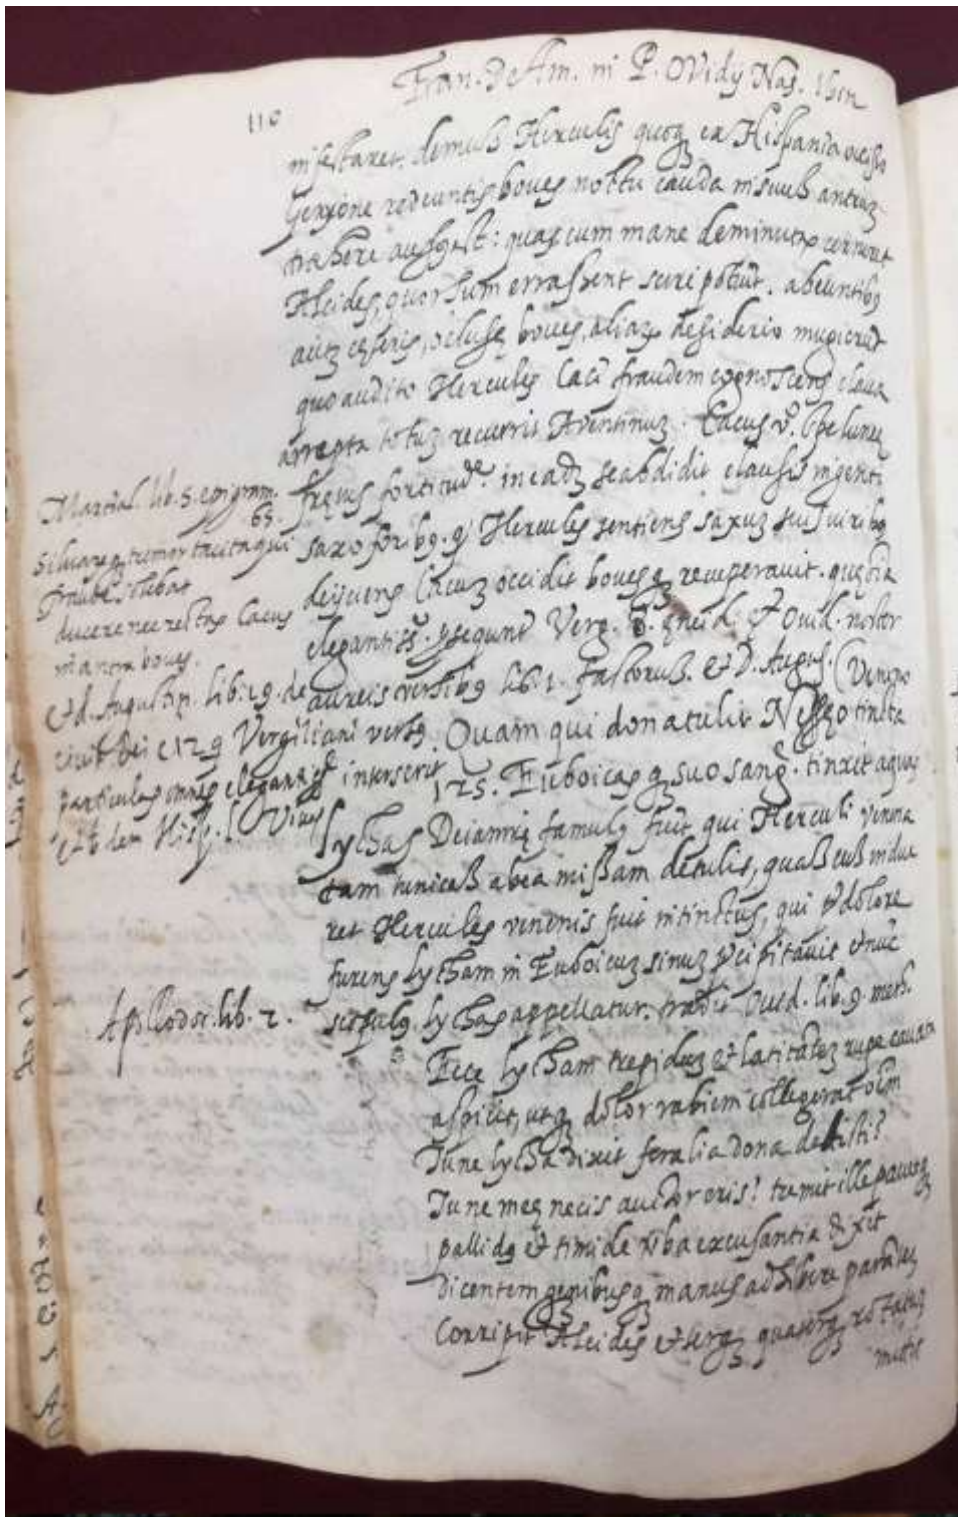 Fran. De Am. in P. Ovidy Nas. Ibin
110
infestaret. demuß Herculis quoqꝫ ex Hispania occiso
Geryone redeuntis boues noctu cauda in suuß antruꝫ
trahere ausꝯ est: quas cum mane deminutas cerneret
Alcides, quorsum errassent scire potuit. abeuntibꝯ
autꝫ cęteris, oclusę boues, aliaꝝ desiderio mugierūt
quo audito Hercules Caci fraudem cognoscens claua
arrepta totuꝫ recurris Auentinuꝫ. Cacus vº. spelunce
fretus fortitudᵉ. in eadꝫ se abdidit clausis ingenti
saxo foribꝯ. qđ Hercules sentiens saxuꝫ suis uiribꝯ
deijciens Cacuꝫ occidit bouesqꝫ recuperauit. quę oīa
elegantiꝰ. ꝓsequnt Verg. 8. ęneid. & Ouid. noster
aureis versibꝯ lib. 1. fastoruß. et D. Augus. (Veneno
Quam qui dona tulit Nesseo tincta
125. Euboicas qꝫ suo sang̃. tinxit aquas
Lychas Deianirę famulꝯ fuit qui Herculi venena
tam tunicaß ab ea mißam detulit, quaß cuß indue
ret Hercules venenis fuit intinctus, qui pꝫ dolore
furens lycham in Euboicuꝫ sinuꝫ pręcipitauit et nūc
scopulꝯ. lychas appellatur. tradit Ouid. lib. 9. meth.
Ecce lycham trepiduꝫ et latitāteꝫ rupe cauata
aspicit, utqꝫ dolor rabiem collegerat oēm
Tune lycha dixit feralia dona dedisti?
Tune meę necis auctor eris? tremit ille pauetqꝫ
pallidꝯ et timide ṽba excusantia dixit
Dicentem genibusqꝫ manus adhibere parātes
Corripit Alcides et terqꝫ quaterqꝫ rotatuꝫ
mittit
Martial. lib. 5. epigramm.
65.
Siluarꝫ tremor tacita qui
fraude solebat
ducere nec rectas Cacus
in antra boues.
et d. Augustin. lib. 19. de
ciuit Dei c 12 qđ Vergiliani versꝯ
particulas omnes elegantissᵉ interserit
et ibidem
Apollodor. lib. 2.